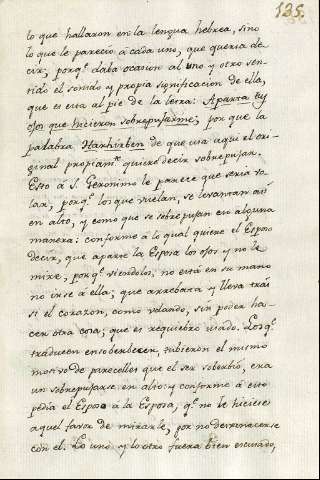 135.
lo que hallaron en la lengua hebrea, sino
lo que le pareció à cada uno, que queria de
cir; porq.e daba ocasion al uno y otro sen-
tido el sonido y propia significacion de ella,
que es una al pie de la letra: Aparta tus
ojos que hicieron sobrepujarme; por que la
palabra Harhirben de que usa aqui el ori-
ginal propiam.te quiere decir sobrepujar.
Esto à S. Geronimo le parece que seria vo-
lar, porq.e los que vuelan, se levantan así
en alto, y como que se sobrepujan en alguna
manera: conforme à lo qual quiere el Esposo
decir, que aparte la Esposa los ojos y no le
mire, porq.e viendolos, no está en su mano
no irse à ella; que arrebata y lleva tras
si el corazon, como volando, sin poder ha-
cer otra cosa; que es requiebro usado. Los q.e
traducen ensoberbecer, tubieron el mismo
motivo de parecelles que el ser soberbio, era
un sobrepujarse en alto: y conforme à esto
pedia el Esposo à la Esposa, q.e no le hiciese
aquel favor de mirarle, por no desvanecerse
con el. Lo uno y lo otro fuera bien escusado,